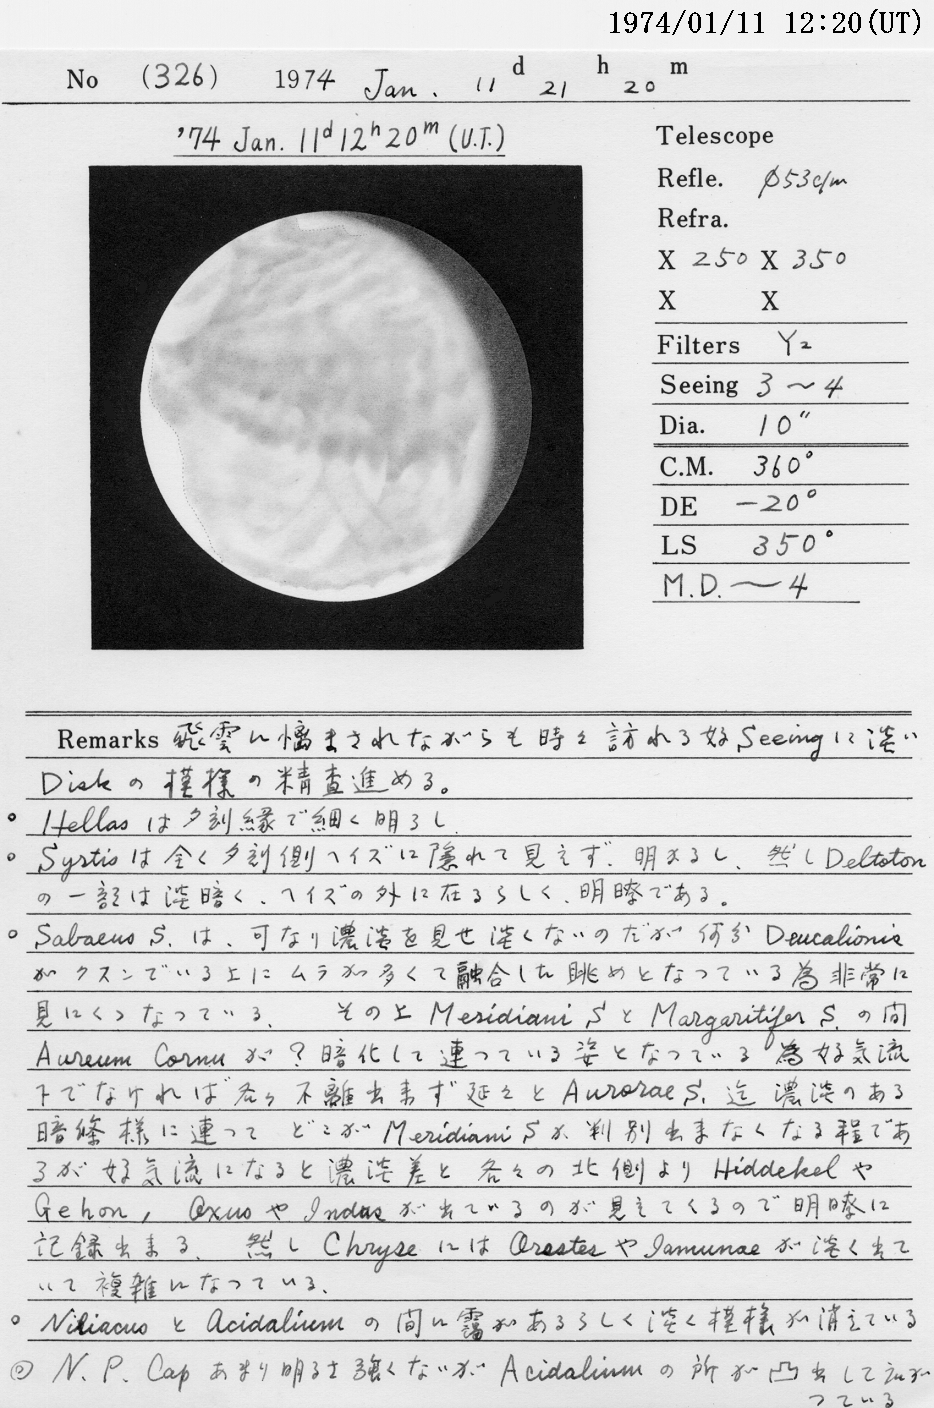 1974/01/11 12:20(UT)
No (326) 1974 Jan. 11 d 21 h 20 m
'74 Jan. 11d 12h 20m (U.T.)
Telescope
Refle. φ53c/m
Refra.
X 250 X 350
X X
Filters Y2
Seeing 3～4
Dia. 10″
C.M. 360°
DE －20°
LS 350°
M.D.～4
Remarks 飛雲に悩まされながらも時々訪れる好Seeingに淡い
Diskの模様の精査進める。
° Hellasは夕刻縁で細く明るし
° Syrtisは全く夕刻側ヘイズに隠れて見えず、明まるし、然しDeltoton
の一部は淡暗く、ヘイズの外に在るらしく、明瞭である。
° Sabaeus S. は、可なり濃淡を見せ淡くないのだが何分Deucalionis
がクスンでいる上にムラが多くて融合した眺めとなっている為非常に
見にくゝなっている、 その上Meridiani SとMargaritifer S.の間
Aureum Cornuが？暗化して連っている姿となっている為好気流
下でなければ各々不離出来ず延々とAurorae S.迄濃淡のある
暗條様に連って どこがMeridiani Sか判別出来なくなる程であ
るが好気流になると濃淡差と各々の北側よりHiddekelや
Gehon, OxusやIndusが出ているのが見えてくるので明瞭に
記録出来る、 然しChryseにはOrestesやIamunaeが淡く出て
いて複雑になっている、
° NiliacusとAcidaliumの間に靄があるらしく淡く模様が消えている
◎ N. P. Capあまり明るさ強くないがAcidaliumの所が凸出して
っている